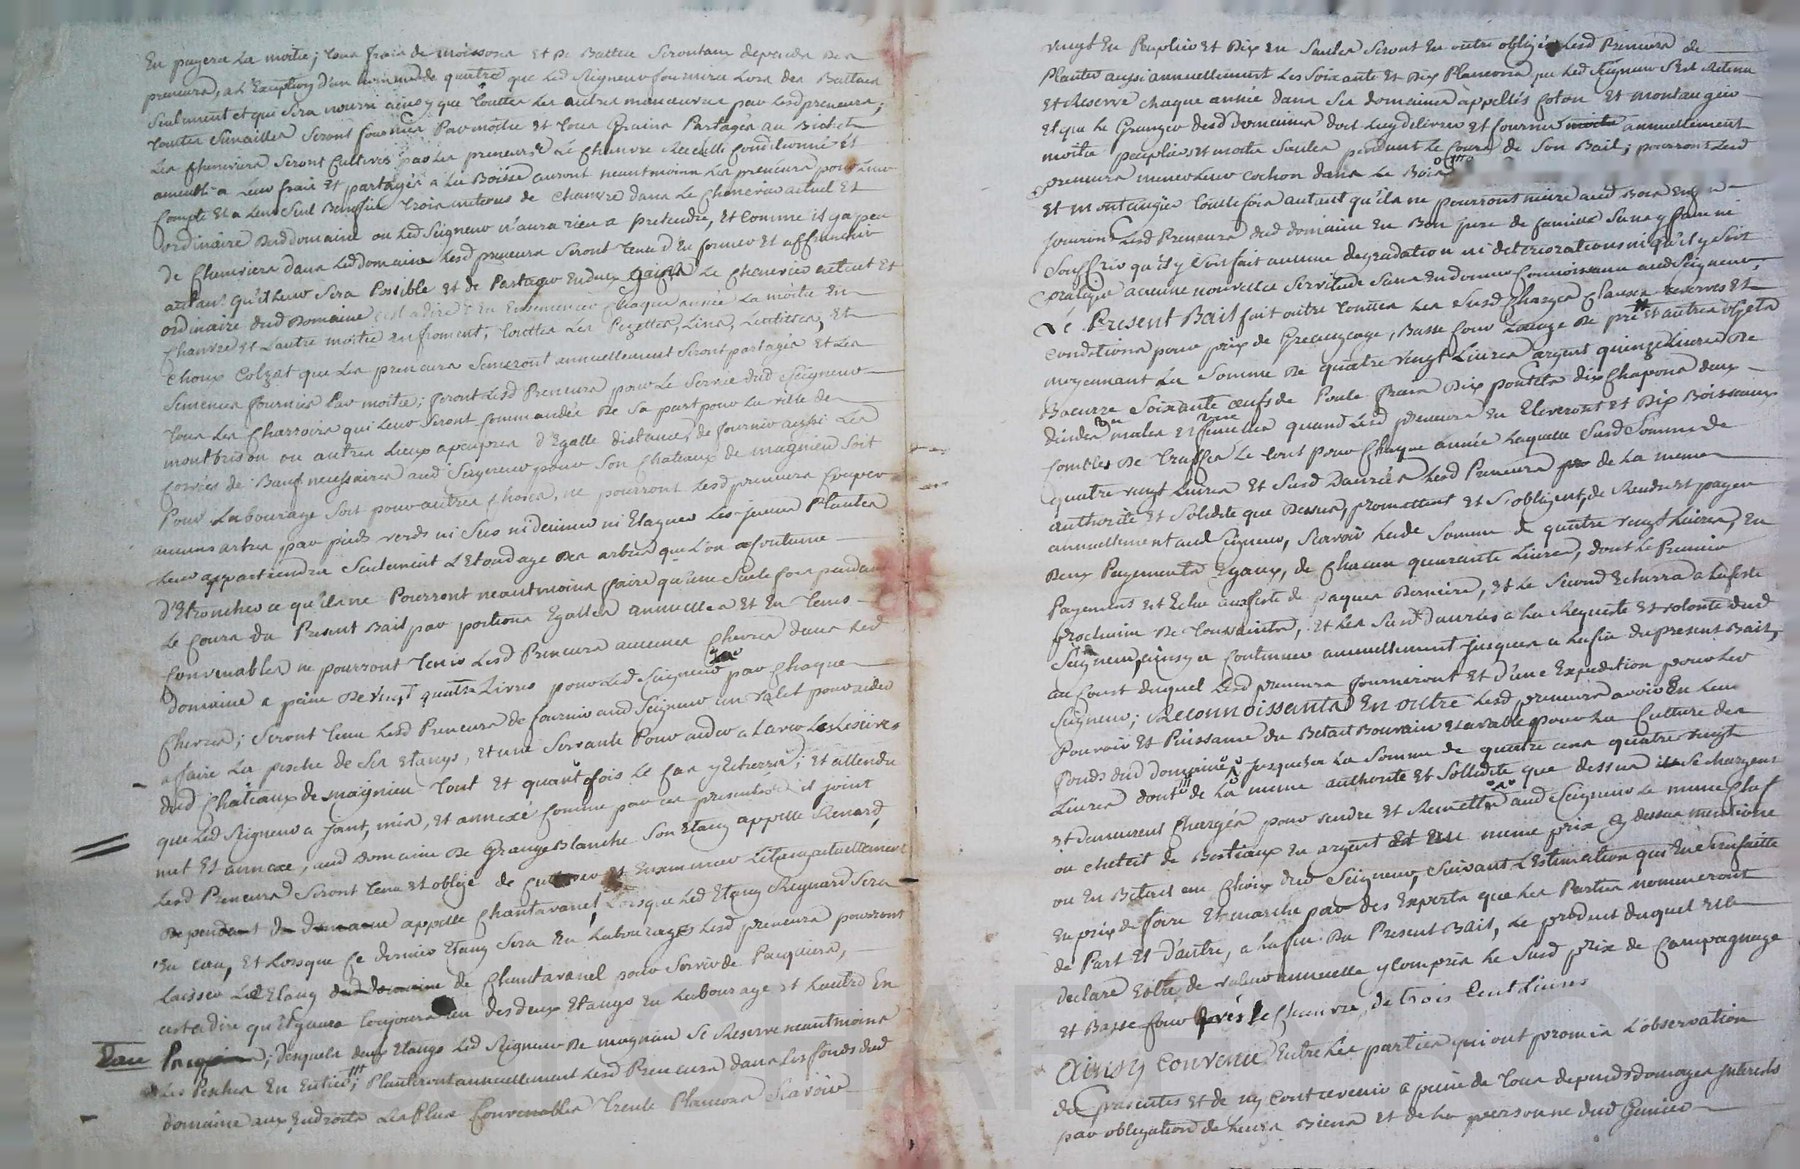 En payera la moitie; tous frais de moissons et de Battue seront aux depends des
preneurs, a l'Exception d'un homme de quatre que led Seigneur fournira Lors des Battues
seulement et qui sera nourri ainsy que touttes les autres manœuvres par lesd preneurs;
touttes semailles seront fournies Par moitie et tous Grains Partagés au
Les cheneviers seront cultivés par les preneurs Le chanvre Recueilli conditionné et
a leur frais et partagés a la Boisse auront neantmoins les preneurs pour leur
compte et a leur seul Benefice trois de chanvre dans le chenevier actuel et
ordinaire dud domaine ou led Seigneur n'aura rien a pretendre, et comme il y a peu
de cheneviers dans led domaine lesd preneurs seront tenu d'en former et
autant qu'il leur sera Possible et de Partager en deux le chenevier actuel et
ordinaire dud Domaine c'est a dire d'en Ensemencer chaque année La moitie en
chanvre et l'autre moitie en froment, touttes les Pezettes, Lins, Lentilles, et
choux colzat que les preneurs semeront annuellement seront partagés et les
semences fournies Par moitie; feront lesd Preneurs pour le service dud Seigneur
tous les charrois qui leur seront commandés de sa part pour la ville de
montbrison ou autres lieux a peu pres d'Egalle distance, de fournir aussi les
corvées de Bœuf necessaires aud Seigneur pour son chateaux de magnieu soit
Pour Labourage soit pour autres choses, ne pourront lesd preneurs couper
aucuns arbres par pieds verds ni secs ni ni Elaguer les jeunes Plantes
Leur appartiendra seulement L'Etondage des arbres que l'on a coutume
d'Etroncher ce qu'ils ne Pourront neantmoins faire qu'une seule fois pendant
le cours du Present Bail par portions Egalles annuelles et en tems
convenables ne pourront tenir lesd Preneurs aucunes chevres dans led
Domaine a peine de vingt quatre Livres pour led Seigneur par chaque
chevres; seront tenu lesd Preneurs de fournir aud Seigneur un valet pour aider
a faire la pesche de ses etangs, et une servante Pour aider a laver les Lessives
dud chateaux de magnieu tout et quant fois le cas y Echerra; et attendu
que led Seigneur a joint, mis, et annexé comme par ces presentes il joint
met et annexe, aud domaine de Grange Blanche son Etang appellé Renard,
Lesd Preneurs seront tenu et obligé de cultiver et Ensemencer l'etang actuellement
dependant du domaine appellé chantavanel, Lorsque led Etang Reynard sera
En eau, et Lorsque ce dernier Etang sera En Labourages lesd preneurs pourront
Laisser led Etang dud domaine de chantavanel pour servir de Paquiers,
c'est a dire qu'il y aura toujours un des deux Etangs en Labourage et l'autre En
Eau Paquiers; desquels deux Etangs led Seigneur de magnieu se Reserve neantmoins
les Peches En Entier; Planteront annuellement lesd Preneurs dans les fonds dud
domaine aux Endroits les Plus convenables trente Plancons sçavoir
vingt En Peuplier et Dix en saules seront En outre obligés lesd Preneurs de
Planter aussi annuellement les soixante et Dix Plancons que led Seigneur s'est Retenu
et Reserve chaque année dans ses domaines appellés coton et montaugier
et que le Granger desd Domaines doit luy delivrer et fournir moitie annuellement
moitie peuplier et moitie saules pendant le cours de son Bail; pourront lesd
preneurs mener leur cochon dans le Bois
et montaugier toutefois autant qu'ils ne pourront nuire aud Bois En
jouiront lesd Preneurs dud domaine en Bon pere de famille sans y faire ni
souffrir qu'il y soit fait aucune degradation ni deteriorations ni qu'il y soit
pratiqué aucune nouvelle servitude sans En donner connoissance aud Seigneur,
Le Present Bail fait outre touttes les susd charges clauses reserves et
conditions pour prix de Grangeage, Basse cour Louage de pré et autres objets
moyennant la somme de quatre vingt Livres argent quinze Livres de
Baeurre soixante œufs de Poule frais Dix poulets dix chapons deux
dindes males et femelles quand lesd preneurs En Eleveront et Dix Boisseaux
combles de Truffes le tout pour chaque année laquelle susd somme de
quatre vingt Livres et susd Danrées lesd Preneurs de la meme
authorité et solidité que Dessus, promettent et s'obligent, de Rendre et payer
annuellement aud Seigneur, sçavoir lade somme de quatre vingt Livres, En
deux Payements Egaux, de chacun quarante Livres, dont le Premier
Payement est Echu aux feste de paques Derniere, et le second Echerra a la feste
prochaine de Toussaints, et les susd danrées a la Requeste et volonté dud
Seigneur, ainsy a continuer annuellement jusques a la fin du present Bail,
au court duquel lesd preneurs fourniront et d'une Expedition pour led
Seigneur; Reconnoissants En outre lesd preneurs avoir En leur
Pouvoir et Puissance du Betail Bouvain et arable pour la Culture des
fonds dud domaine jusques a la somme de quatre cens quatre vingt
Livres dont de la meme authorité et sollidité que dessus se chargent
et demeurent chargés pour rendre et Remettre aud Seigneur le meme
ou cheteil de Bestiaux en argent meme prix cy dessus mentionné
ou En Betail au choix dud Seigneur, suivant l'Estimation qui En sera faitte
En prix de foire et marche par des Experts que les Parties nommeront
de Part et d'autre, a la fin du Present Bail, le produit duquel
declaré Estre de valeur annuelle y compris le susd prix de Compagnage
et Basse cour le chanvre, de trois Cent Livres
Ainsy Convenu Entre les parties qui ont promis l'observation
des presentes et de n'y contrevenir a peine de tous depends domages interests
par obligation de leurs Biens et de la personne dud
CHARTRON